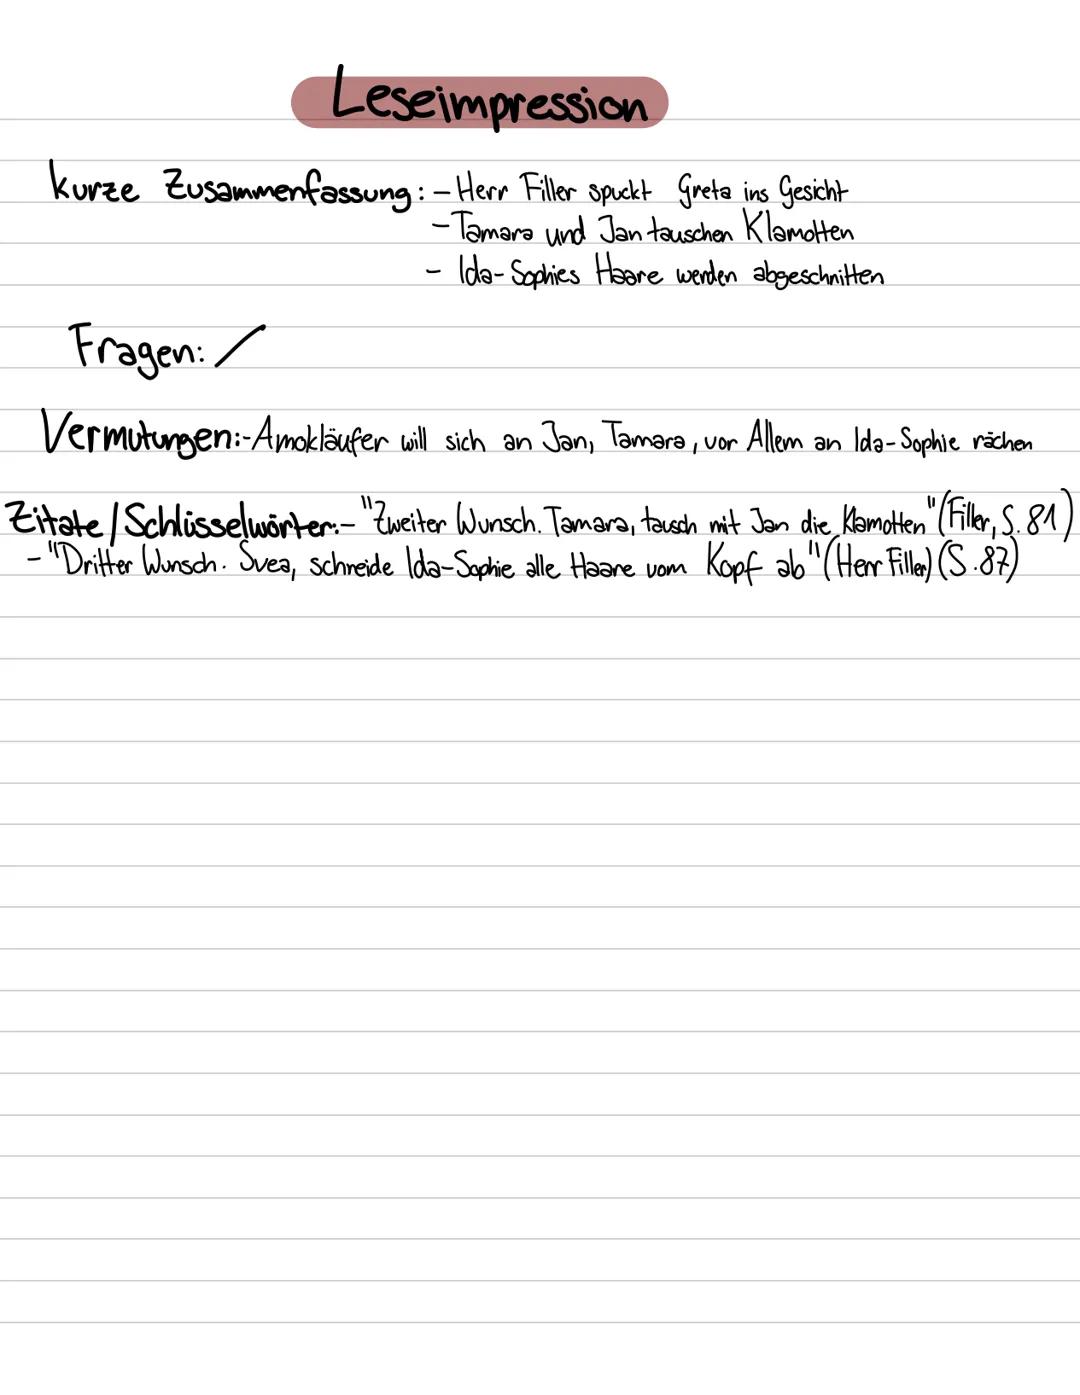 Leseimpression
kurze Zusammenfassung: - Herr Filler spuckt Greta ins Gesicht
- Tamara und Jan tauschen Klamotten
- Ida-Sophies Haare werden abgeschnitten
Fragen: /
Vermutungen:- Amokläufer will sich an Jan, Tamara, vor Allem an Ida-Sophie rächen
Zitate / Schlüsselwörter:- "Zweiter Wunsch. Tamara, tausch mit Jan die Klamotten" (Filler, S. 81)
- "Dritter Wunsch. Svea, schneide Ida-Sophie alle Haare vom Kopf ab" (Herr Filler) (S. 87)